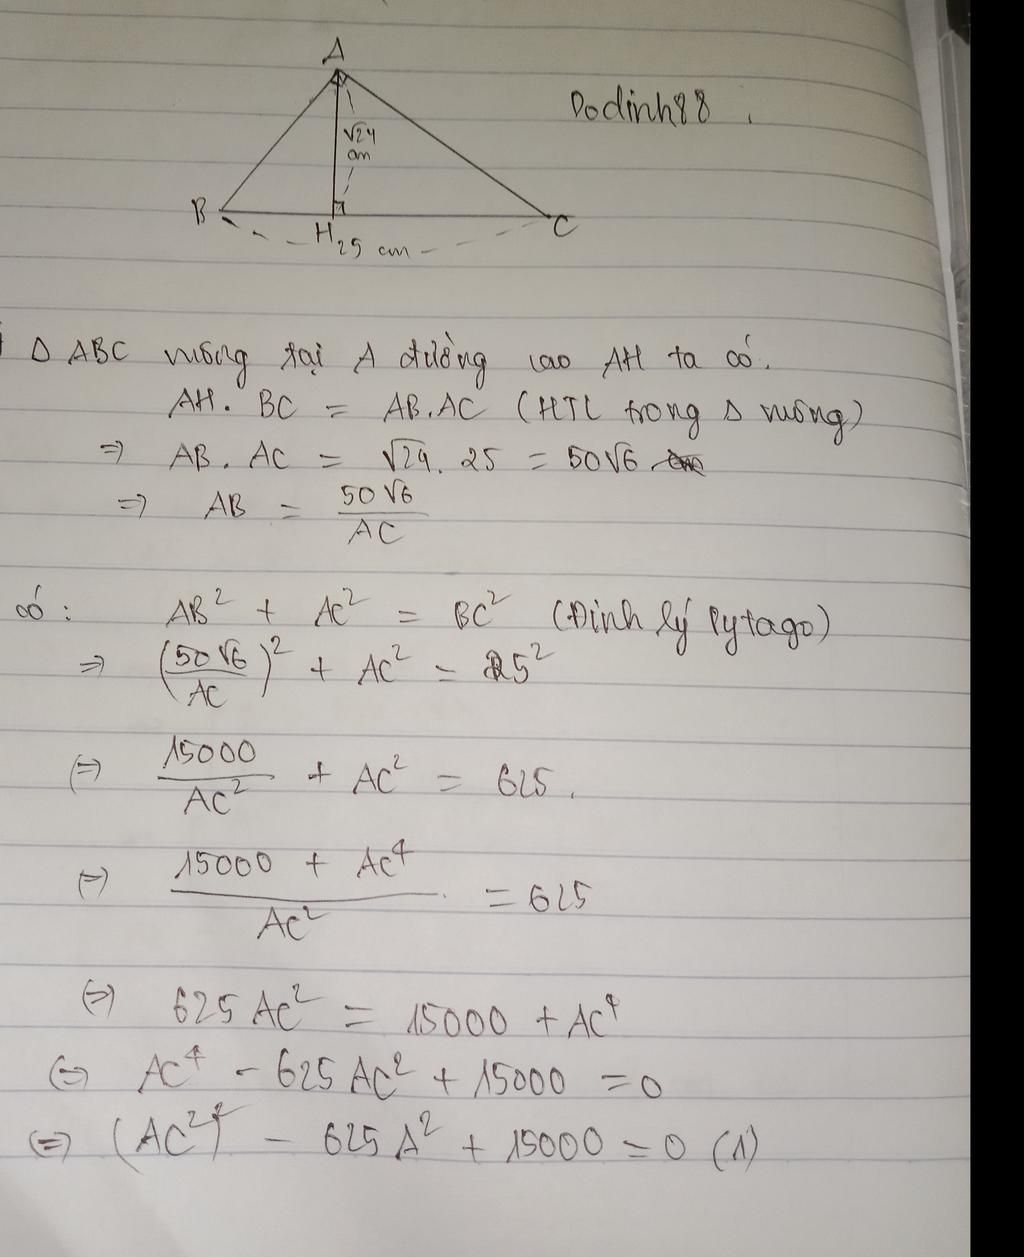 A
Dodinh88.
√24
cm
B
H
C
25 cm
Δ ABC vuông tại A đường cao AH ta có.
AH. BC = AB.AC (HTL trong Δ vuông)
=> AB. AC = √24. 25 = 50√6
=> AB = 50√6 / AC
có: AB² + AC² = BC² (Định lý Pytago)
=> (50√6 / AC)² + AC² = 25²
(=) 15000 / AC² + AC² = 625.
(=) 15000 + AC⁴ / AC² = 625
(=) 625 AC² = 15000 + AC⁴
(=) AC⁴ - 625 AC² + 15000 = 0
(=) (AC²)² - 625 A² + 15000 = 0 (1)